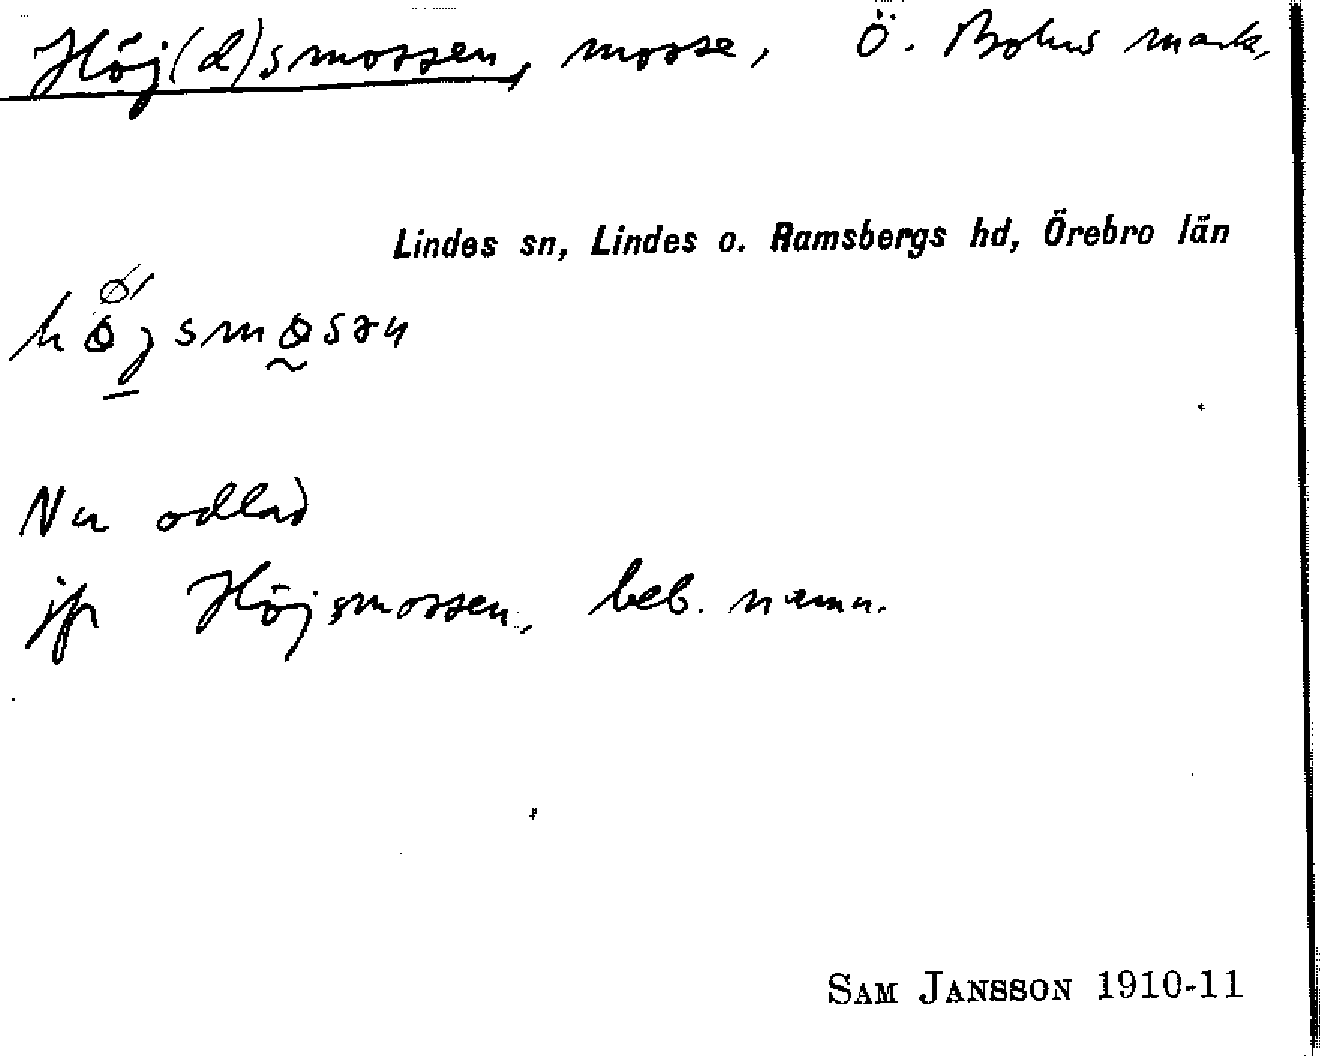 Höj(d)smossen, mosse, Ö. Bohrs mark,
Lindes sn, Lindes o. Ramsbergs hd, Örebro län
Nu odlad
jfr Höjsmossen, beb. namn.
SAM JANSSON 1910-11